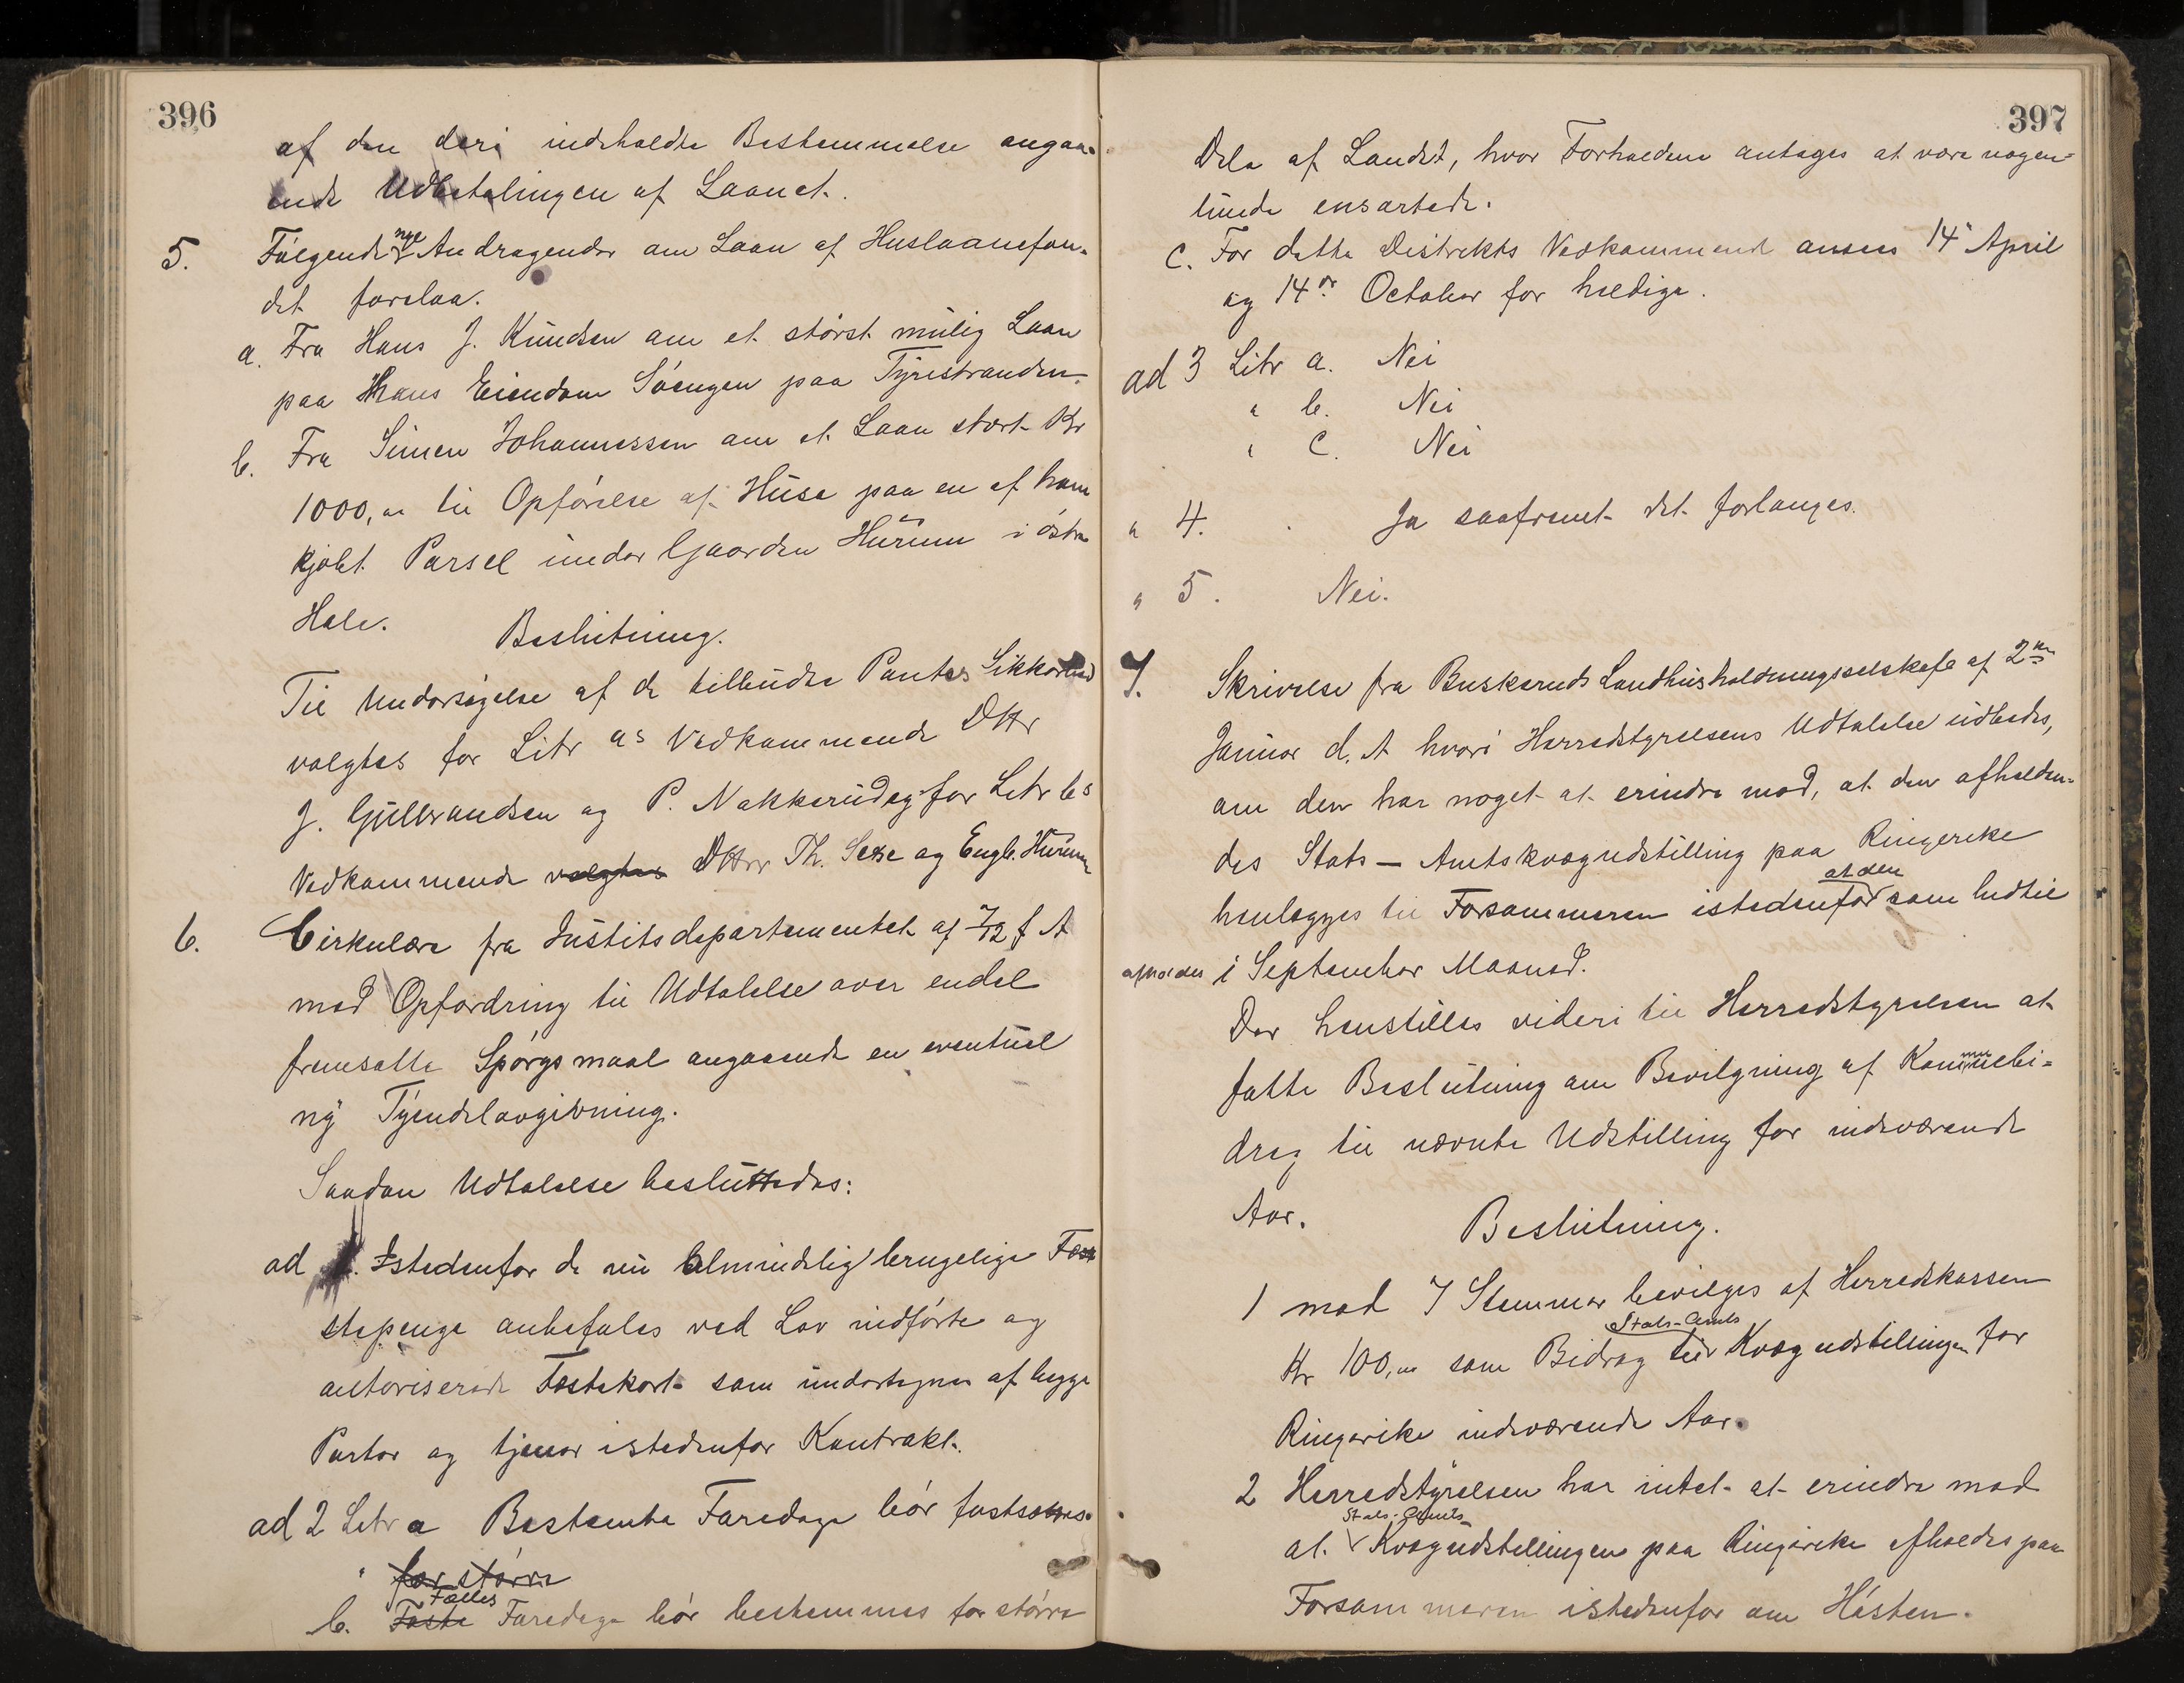 396
af den deri indeholdte Bestemmelse angaa-
ende Udbetalingen af Laanet.
5. Følgende nye Andragender om Laan af Huslaanefon-
det forelaa.
a. Fra Hans J. Knudsen om et størst mulig Laan
paa Hans Eiendom Søengen paa Tyristranden.
b. Fra Simen Johannessen om et Laan stort Kr
1000,00 til Opførelse af Huse paa en af ham
kjøbt Parsel under Gaarden Hurum i østre
Hole.
Beslutning.
Til Undersøgelse af de tilbudte Panters Sikkerhed
valgtes for Litr as Vedkommende DHrr
J. Gulbrandsen og P. Nakkerud og for Litr bs
Vedkommende valgtes DHrr Th. Sexe og Engb. Hurum
6. Cirkulære fra Justitsdepartementet af 7/12 f A
med Opfordring til Udtalelse over endel
fremsatte Spørgsmaal angaaende en eventuel
ny Tyendelovgivning.
Saadan Udtalelse besluttedes:
ad 1. Istedenfor de nu almindelig brugelige Fæ-
stepenge anbefales ved Lov indførte og
autoriserede Fæstekort som undertegnes af begge
Parter og tjener istedenfor Kontrakt.
ad 2 Litr a Bestemte Faredage bør fastsættes.
" for større
b. Faste Fælles Faredage bør bestemmes for større
397
Dele af Landet, hvor Forholdene antages at være nogen-
lunde ensartede.
c. For dette Distrikts Vedkommende ansees 14de April
og 14de October for heldige.
ad 3 Litr a. Nei
" b. Nei
" c. Nei
" 4. Ja saafremt det forlanges.
" 5. Nei.
7. Skrivelse fra Buskeruds Landhusholdningsselskab af 2den
Januar d. A hvori Herredstyrelsens Udtalelse udbedes,
om den har noget at erindre mod, at den afholden-
des Stats-Amtskvægudstilling paa Ringerike
henlægges til Forsommeren istedenfor at den som hidtil
afholdes i September Maaned.
Der henstilles videre til Herredstyrelsen at
fatte Beslutning om Bevilgning af Kommunebi-
drag til nævnte Udstilling for indeværende
Aar.
Beslutning.
1 mod 7 Stemmer bevilges af Herredskassen
Kr 100,00 som Bidrag til Stats-Amts Kvægudstillingen for
Ringerike indeværende Aar.
2 Herredstyrelsen har intet at erindre mod
at Stats-Amts- Kvægudstillingen paa Ringerike afholdes paa
Forsommeren istedenfor om Høsten.